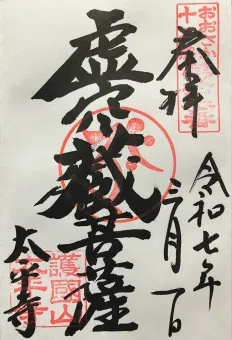 おおさか
十
奉拝
令和七年
月一日
虚空蔵菩薩
太平寺
護國山
太平寺